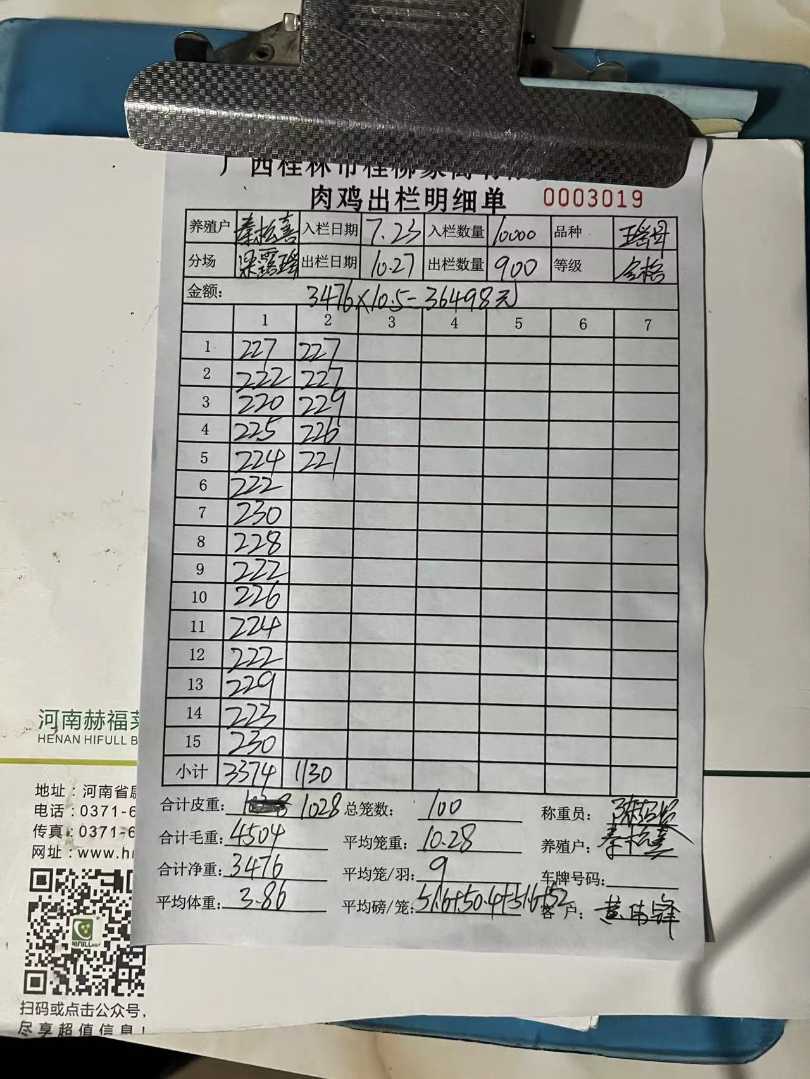 肉鸡出栏明细单 0003019
养殖户 秦松喜 入栏日期 7.23 入栏数量 10000 品种 瑶母
分场 出栏日期 10.27 出栏数量 900 等级 合格
金额: 3476×10.5=36498元
1 2 3 4 5 6 7
1 227 227
2 222 227
3 220 229
4 225 226
5 224 221
6 222
7 230
8 228
9 222
10 226
11 224
12 222
13 229
14 223
15 230
小计 3374 1130
合计皮重: 1028 总笼数: 100 称重员:
合计毛重: 4504 平均笼重: 10.28 养殖户: 秦松喜
合计净重: 3476 平均笼/羽: 9 车牌号码:
平均体重: 3.86 平均磅/笼: 51.6+50.4+51.6+52 客户:
河南赫福莱
HENAN HIFULL B
地址:河南省
电话:0371-6
传真:0371-6
网址:www.h
HIFULL
扫码或点击公众号,
尽享超值信息!